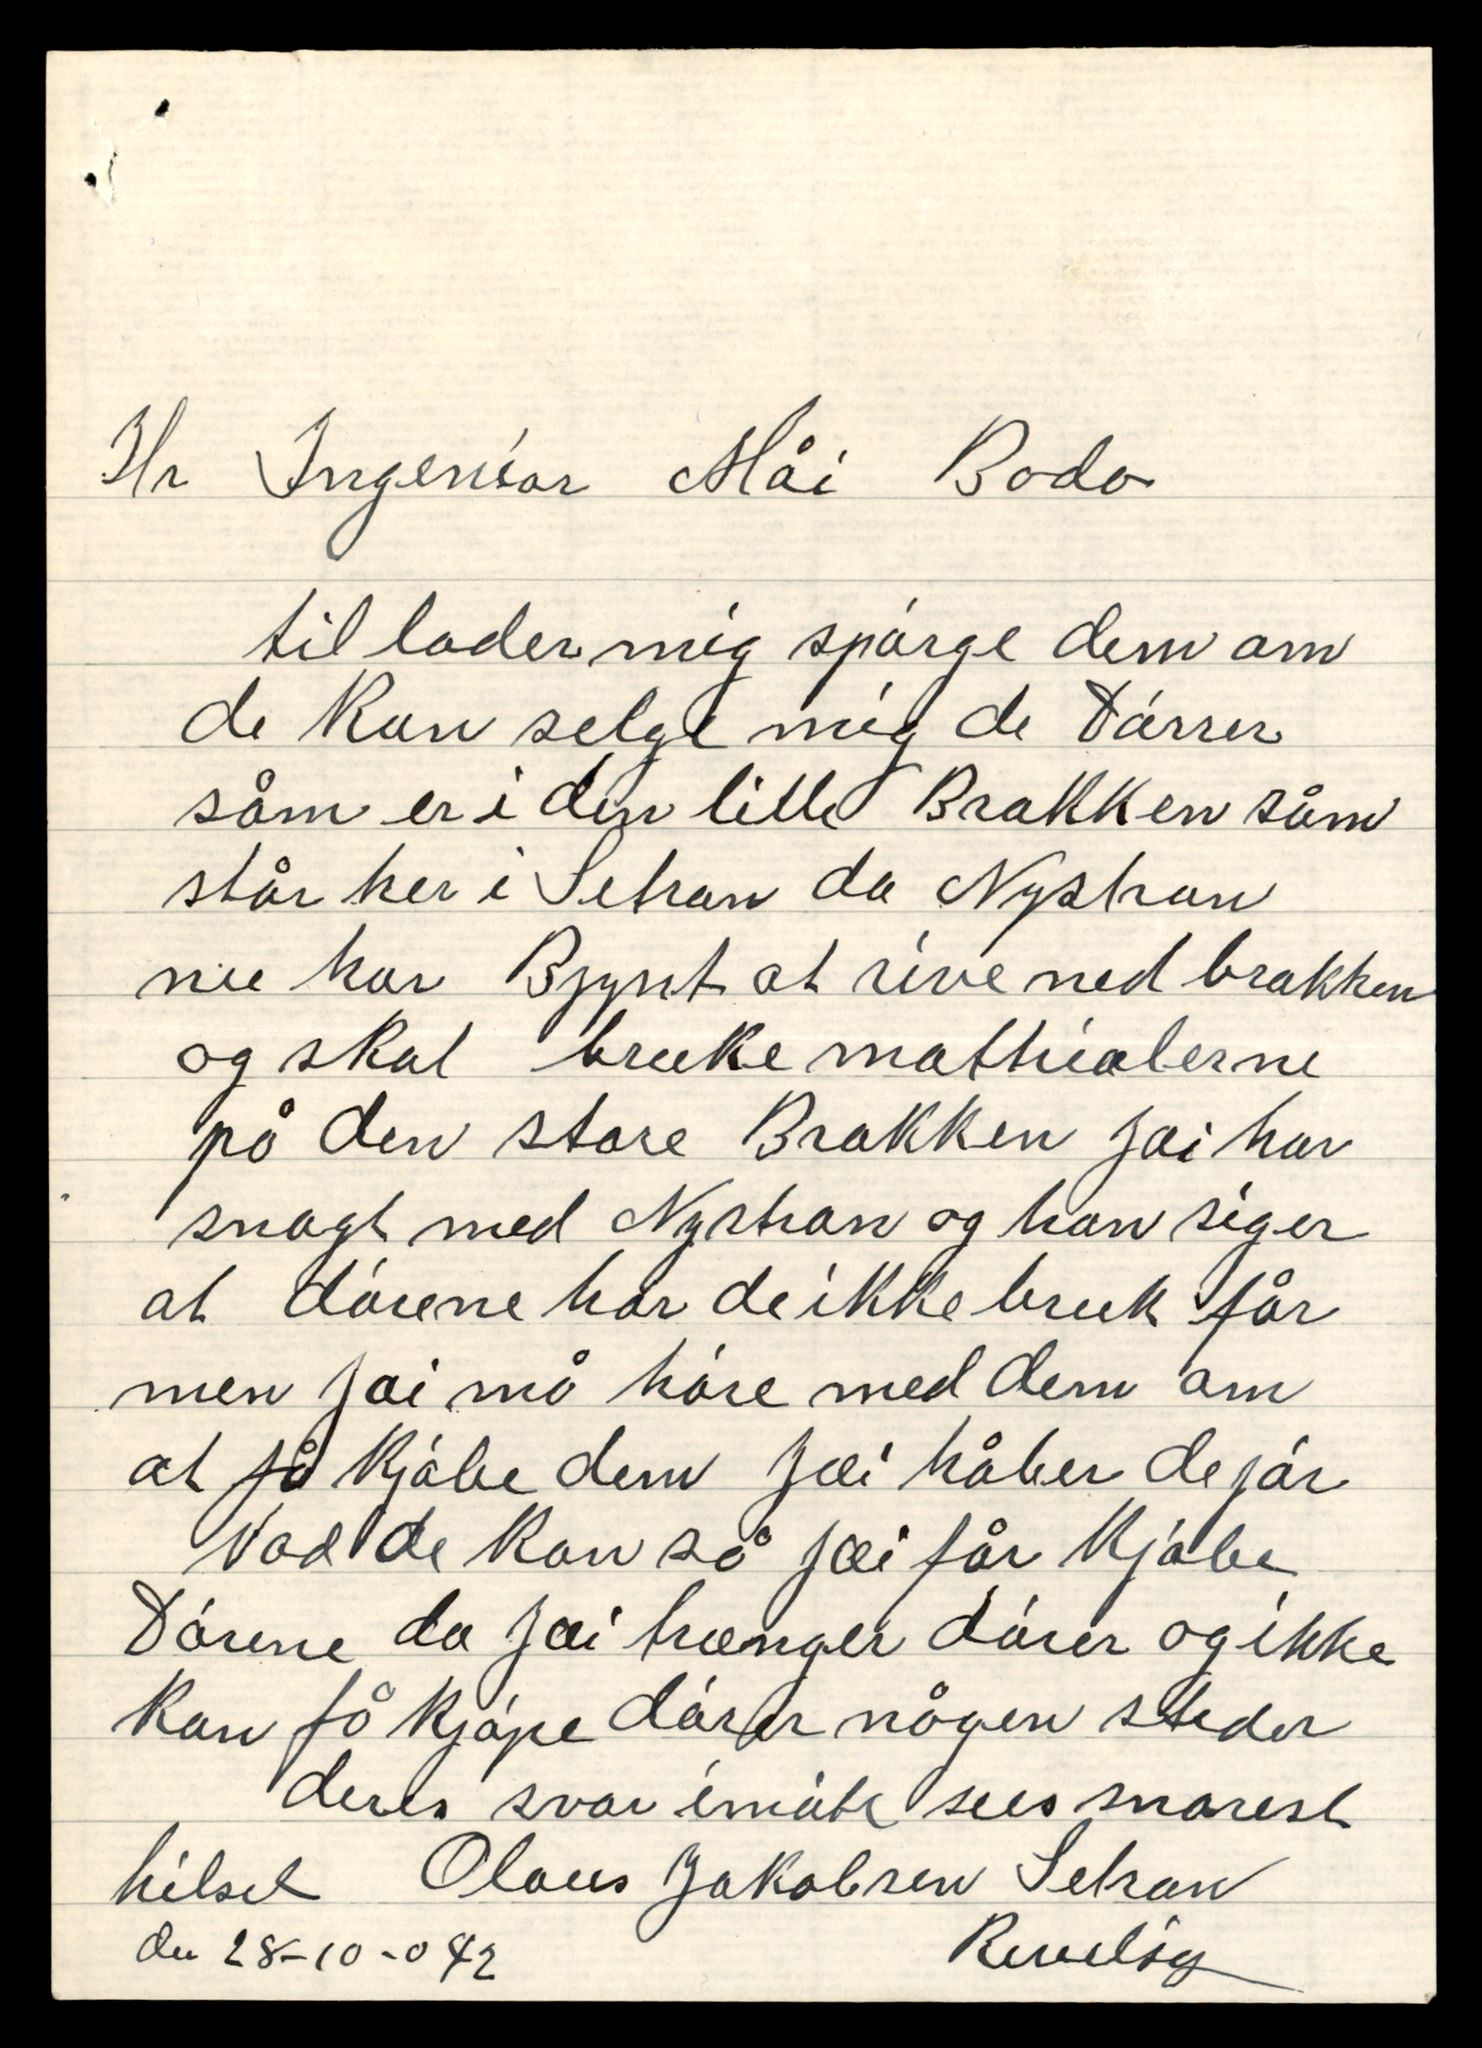 Hr Ingeniør Måi Bodø
til lader mig spørge dem om
de Kan selge mig de Dørrer
såm er i den lille Brakken såm
står her i Setran da Nystran
nu har Bjynt at rive ned brakken
og skal bruke mathialerne
på den store Brakken jæi har
snagt med Nystran og han siger
at dørene har de ikke bruk får
men jæi må høre med dem om
at få Kjøbe dem jæi håber de jør
Vad de Kan så jæi får Kjøbe
Dørene da jæi trænger dører og ikke
Kan få kjøpe dører någen steder
deres svar imøte sees snarest
hilset Olaus Jakobsen Setran
den 28-10-042